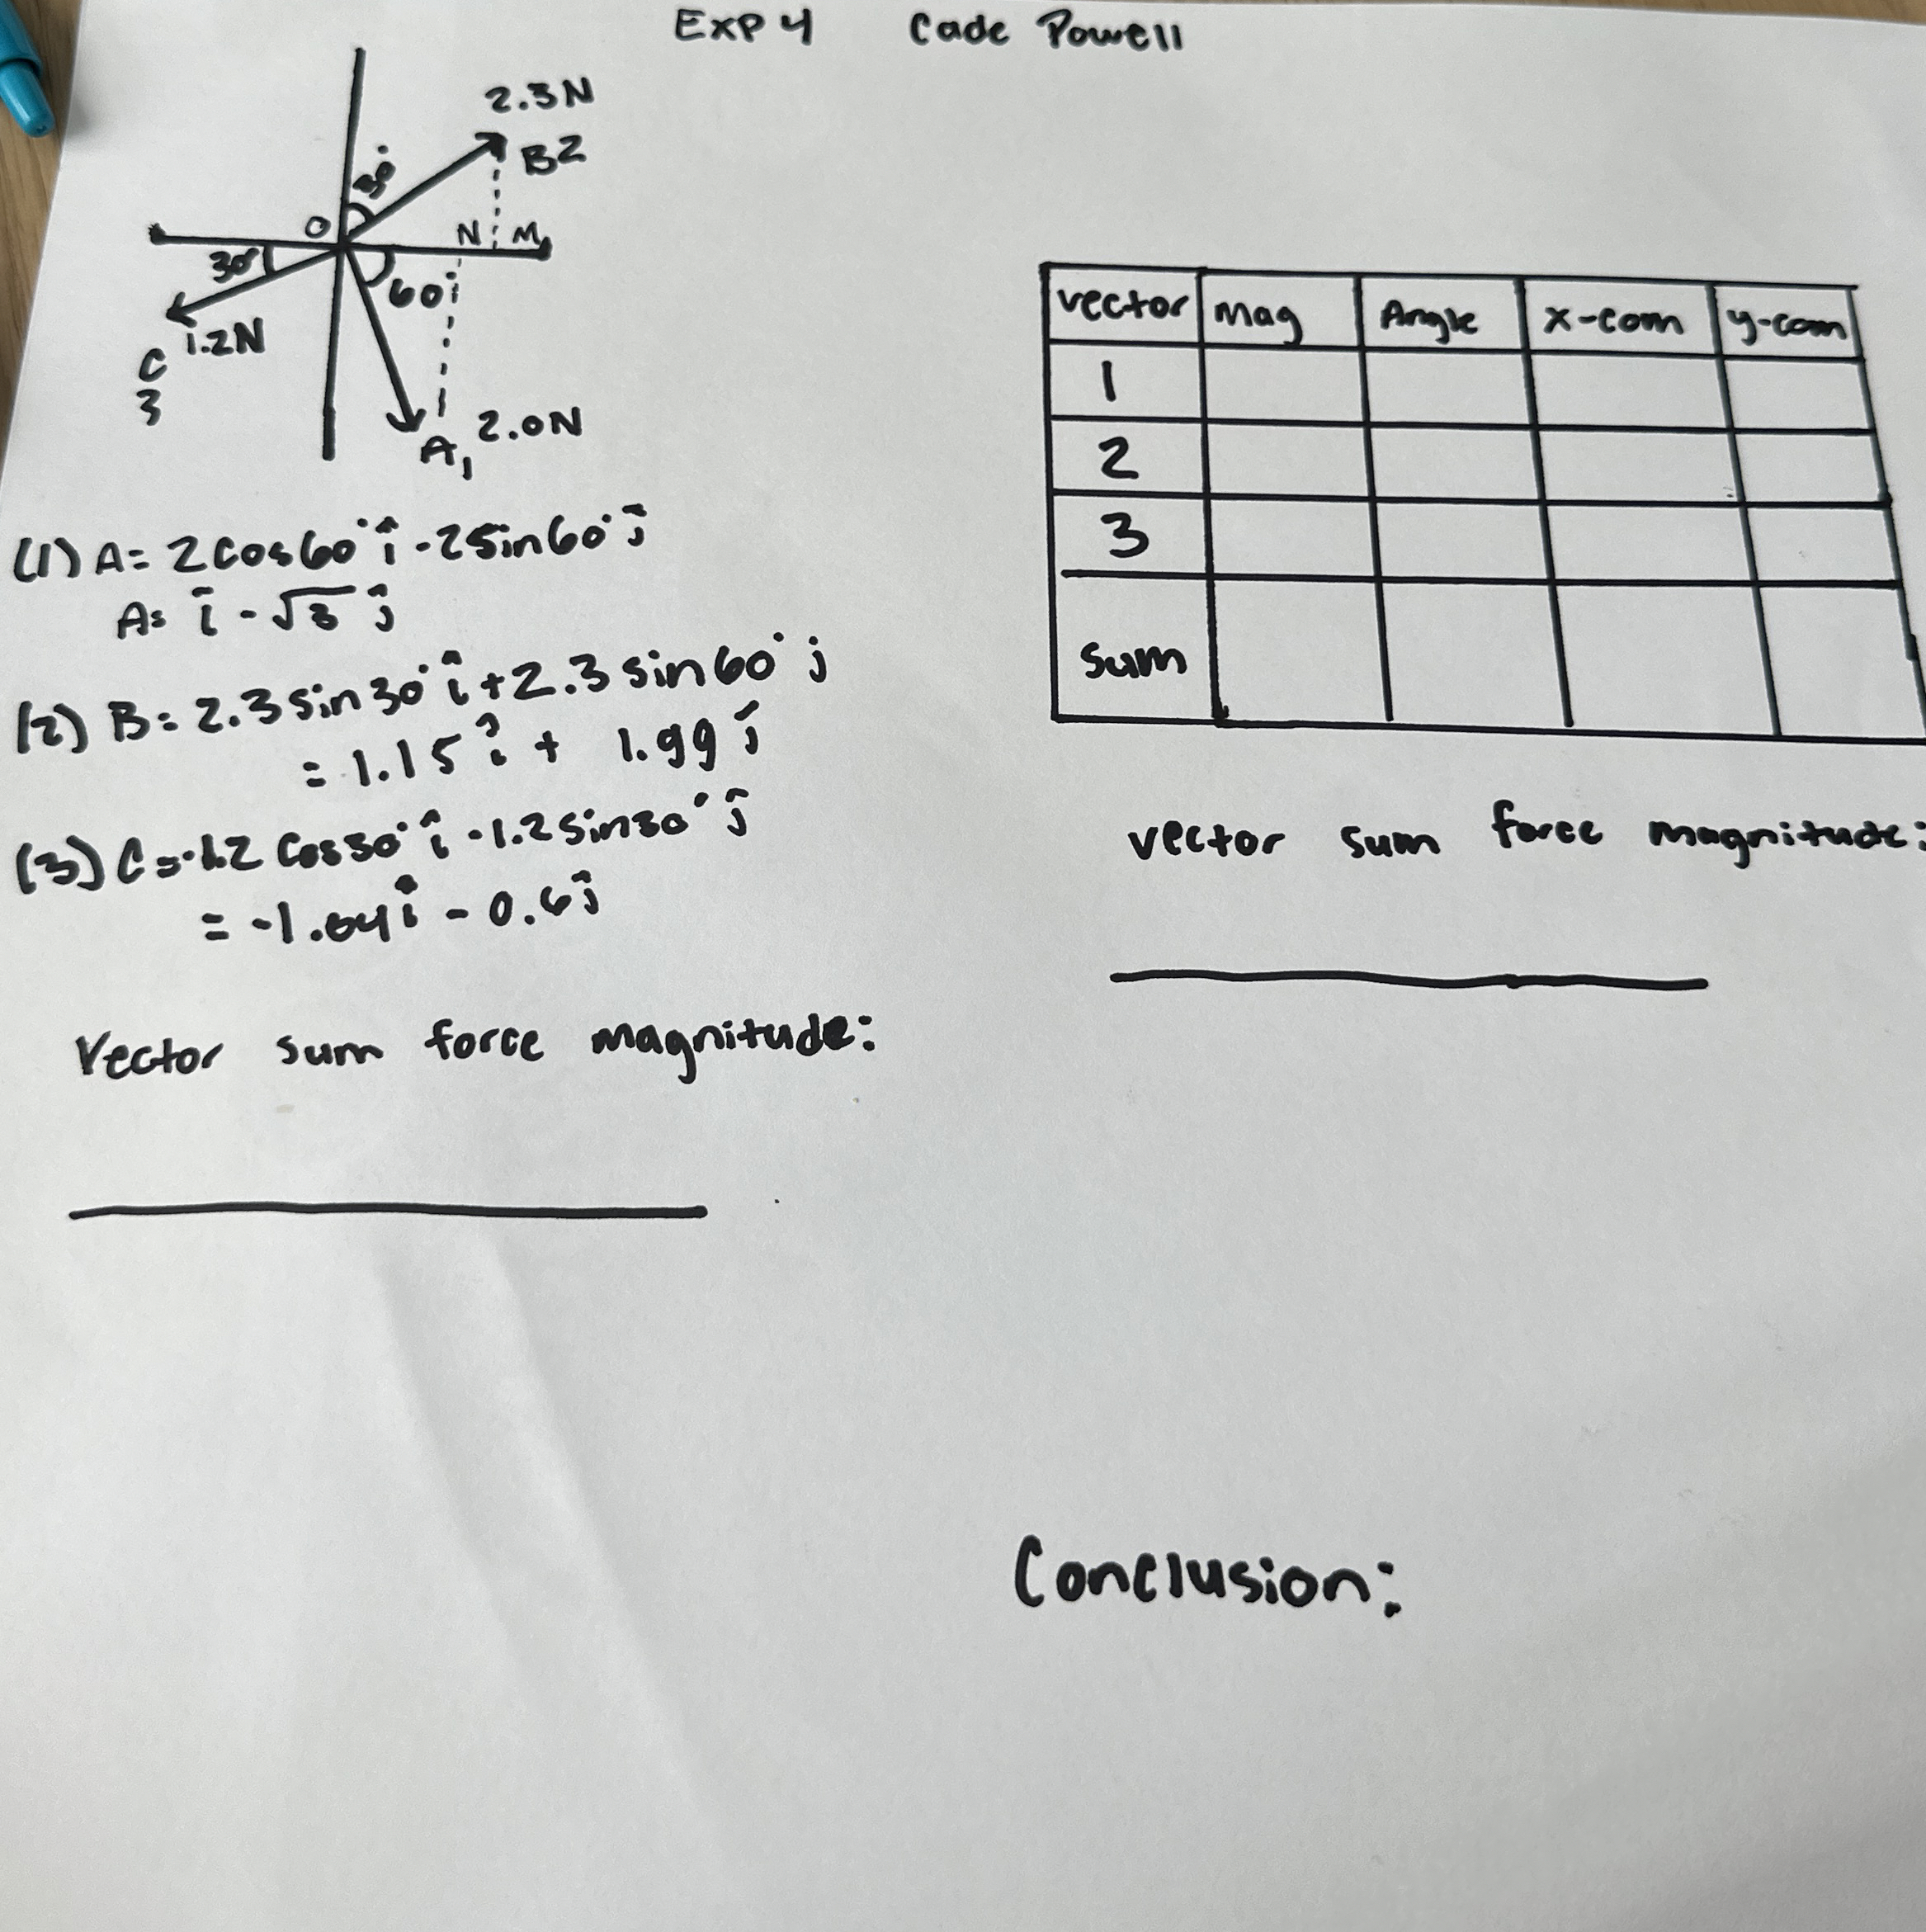 Exp 4 Cade Powell
2.3N
B2
30°
O
N M
30°
60
1.2N
C
3
A1 2.0N
(1) A = 2cos60° î - 2sin60° ĵ
A = î - √3 ĵ
(2) B = 2.3 sin30° î + 2.3 sin60° j
= 1.15 î + 1.99 ĵ
(3) C = -1.2 cos30° î - 1.2 sin30° ĵ
= -1.04 î - 0.6 ĵ
Vector sum force magnitude:
vector mag Angle x-com y-com
1
2
3
Sum
vector sum force magnitude:
Conclusion: